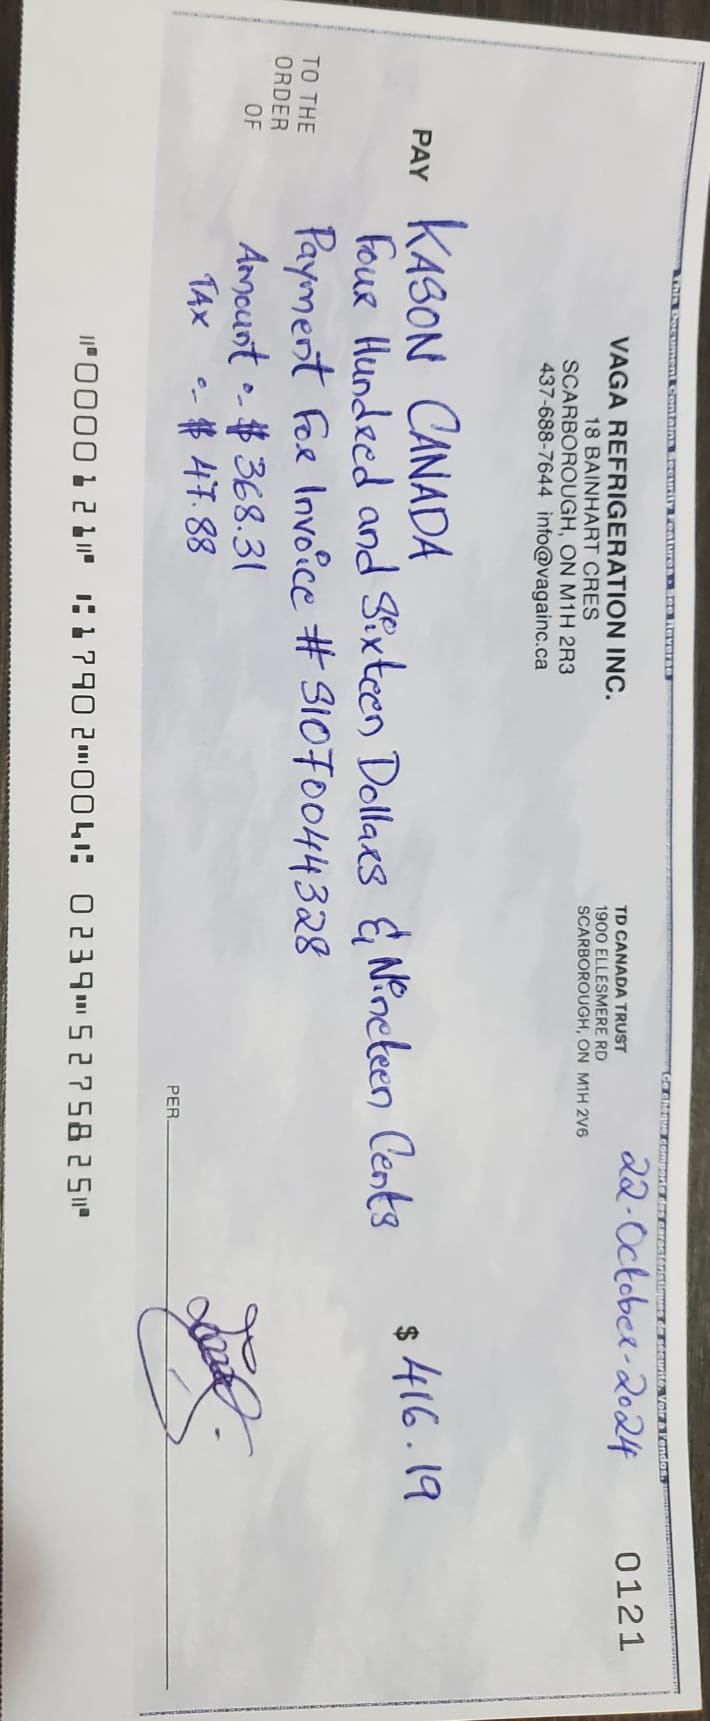 This Document Contains Security Features • See Reverse
Ce chèque comporte des caractéristiques de sécurité. Voir à l'endos.
VAGA REFRIGERATION INC.
18 BAINHART CRES
SCARBOROUGH, ON M1H 2R3
437-688-7644 info@vagainc.ca
TD CANADA TRUST
1900 ELLESMERE RD
SCARBOROUGH, ON M1H 2V6
22-October-2024
0121
PAY KASON CANADA
Four Hundred and Sixteen Dollars & Nineteen Cents
$ 416.19
TO THE
ORDER
OF
Payment For Invoice # SI070044328
Amount :- $ 368.31
TAX :- $ 47.88
PER
⑈000121⑈ ⑆17902⑉004⑆ 0239⑉5275825⑈